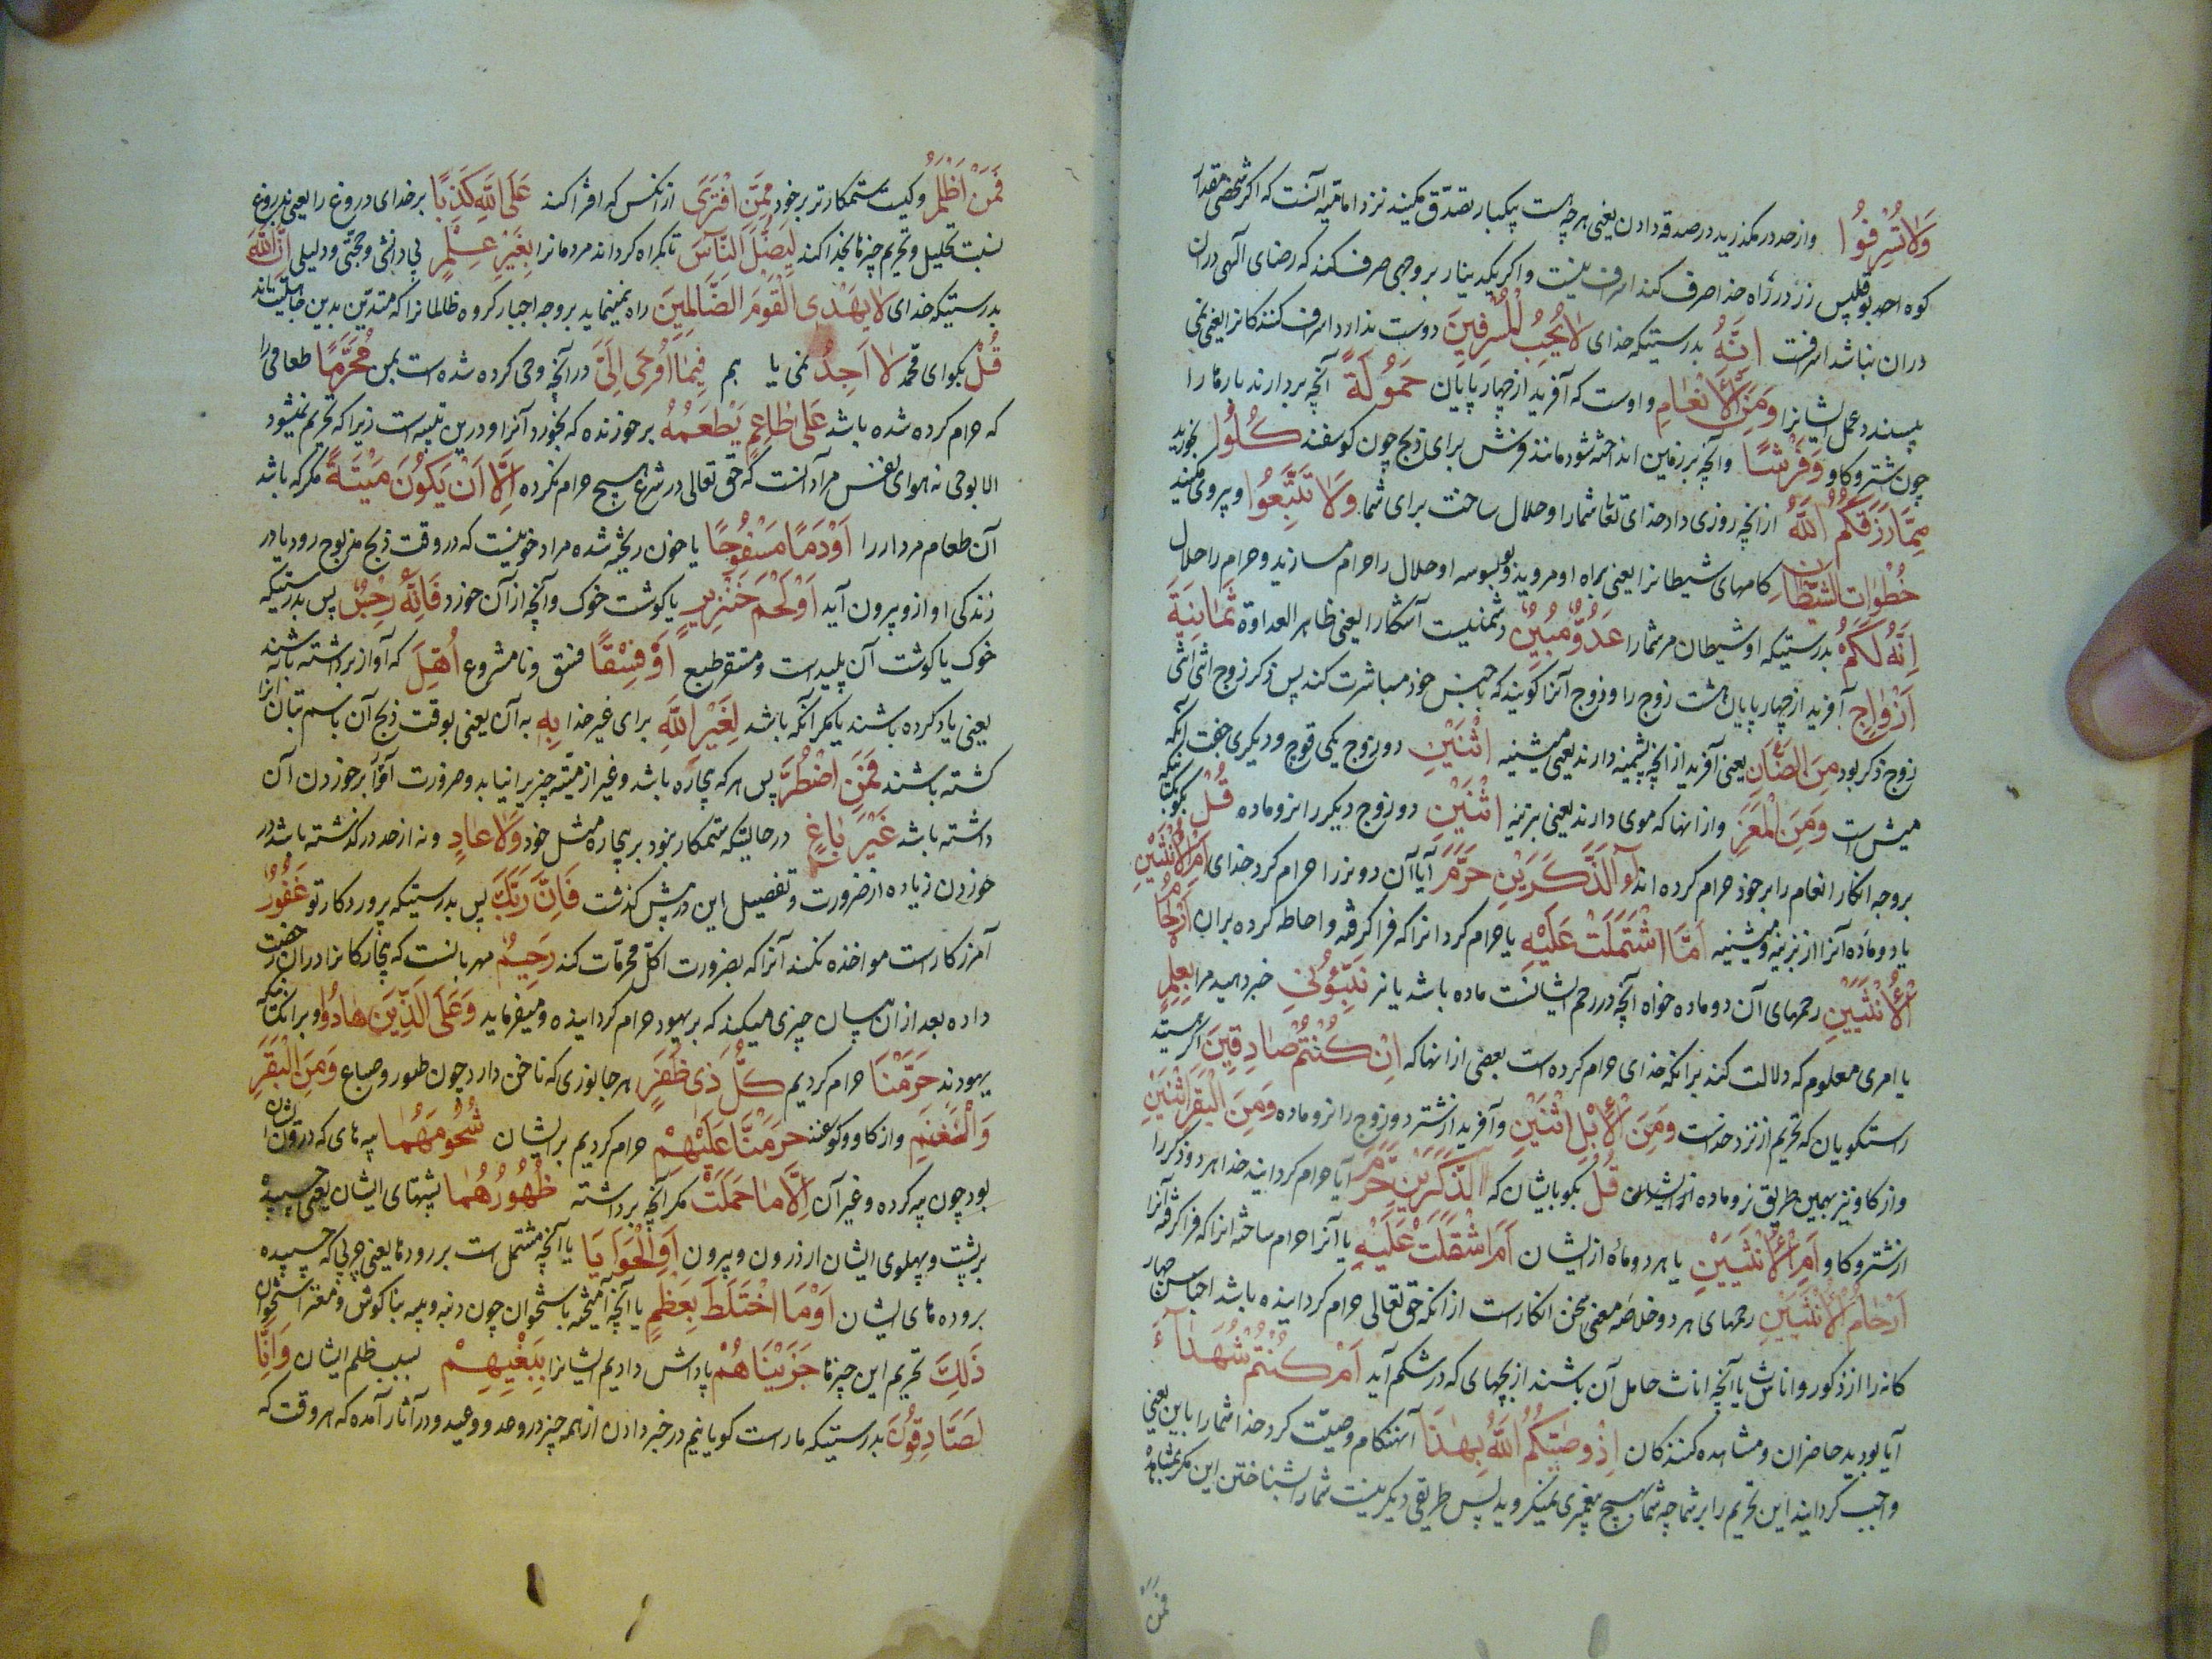 وَلَا تُسْرِفُوا وازحد در مکذرید در صدقه دادن یعنی هر چه هست بیکبار تصدق مکنید نزد امامیه آنست که اکر شخصی مقدار
کوه احد بو قبیس زر در راه خدا صرف کند اسراف نیست و اکر یکدینار بر وجهی صرف کند که رضای الهی دران
دران نباشد اسرافست اِنَّهُ بدرستیکه خدای لَا یُحِبُّ الْمُسْرِفِینَ دوست ندارد اسراف کنندکانرا یعنی نمی
پسندد عمل ایشانرا وَمِنَ الْاَنْعَامِ و اوست که آفرید از چهار پایان حَمُولَةً آنچه بردارند بارها را
چون شتر و کاو وَفَرْشًا وآنچه بر زمین انداخته شود مانند فرش برای ذبح چون کوسفند کُلُوا بخورید
مِمَّا رَزَقَکُمُ اللَّهُ ازانچه روزی داد خدای تعا شمارا و حلال ساخت برای شما وَلَا تَتَّبِعُوا و پیروی مکنید
خُطُوَاتِ الشَّیْطَانِ کامهای شیطانرا یعنی براه او مروید و بوسوسه او حلال را حرام مسازید و حرام را حلال
اِنَّهُ لَکُمْ بدرستیکه او شیطان مر شمارا عَدُوٌّ مُبِینٌ دشمنیست آشکارا یعنی ظاهر العداوة ثَمَانِیَةَ
اَزْوَاجٍ آفرید از چهار پایان هشت زوج را و زوج آنرا کویند که با جنس خود مباشرت کند پس ذکر زوج انثی انثی
زوج ذکر بود مِنَ الضَّاْنِ یعنی آفرید از انچه پشمینه دارند یعنی میشینه اثْنَیْنِ دو زوج یکی قوچ و دیکری جفت آنکه
میش است وَمِنَ الْمَعْزِ و ازانها که موی دارند یعنی بزینه اثْنَیْنِ دو زوج دیکر را نر و ماده قُلْ بکو
بر وجه انکار انعام را بر خود حرام کرده اند ءآلذَّکَرَیْنِ حَرَّمَ آیا آن دو نر را حرام کرد خدای اَمِ الْاُنْثَیَیْنِ
یا دو ماده آنرا از بزینه و میشینه اَمَّا اشْتَمَلَتْ عَلَیْهِ یا حرام کرد انرا که فرا کرفته و احاطه کرده بران اَرْحَامُ
الْاُنْثَیَیْنِ رحمهای آن دو ماده خواه آنچه در رحم ایشانست ماده باشد یا نر نَبِّئُونِی خبر دهید مرا بِعِلْمٍ
یا امری معلوم که دلالت کند برانکه خدای حرام کرده است بعضی ازانها که اِنْ کُنْتُمْ صَادِقِینَ اکر هستید
راستکویان که تحریم از نزد خداست وَمِنَ الْاِبْلِ اثْنَیْنِ و آفرید از شتر دو زوج را نر و ماده وَمِنَ الْبَقَرِ اثْنَیْنِ
و از کاو نیز بهمین طریق نر و ماده قُلْ بکو بایشان که ءآلذَّکَرَیْنِ حَرَّمَ آیا حرام کردانید خدا هر دو ذکر را
از شتر و کاو اَمِ الْاُنْثَیَیْنِ یا هر دو ماده از ایشان اَمَّا اشْتَمَلَتْ عَلَیْهِ یا آنرا حرام ساخته انرا که فرا کرفته آنرا
اَرْحَامُ الْاُنْثَیَیْنِ رحمهای هر دو خلاصه معنی سخن انکار است ازانکه حق تعالی حرام کردانیده باشد اجناس چهار
کانه را از ذکور و اناث یا آنچه اناث حامل آن باشند از بچهای که در شکم آید اَمْ کُنْتُمْ شُهَدَآءَ
آیا بودید حاضران و مشاهده کنندکان اِذْ وَصَّیکُمُ اللَّهُ بِهٰذَا آنهنکام وصیت کرد خدا شمارا باین یعنی
واجب کردانید این تحریم را بر شما چه شما بهیچ پیغمبری نمیکروید پس طریقی دیکر نیست شمارا بشناختن این مکر بمشاهده
فمن
فَمَنْ اَظْلَمُ وکیست ستمکارتر بر خود مِمَّنِ افْتَرَی ازانکس که افترا کند عَلَی اللَّهِ کَذِبًا بر خدای دروغ را یعنی بدروغ
نسبت تحلیل و تحریم چیزها بخدا کند لِیُضِلَّ النَّاسَ تا کمراه کرداند مردمانرا بِغَیْرِ عِلْمٍ بی دانشی و حجتی و دلیلی اِنَّ اللَّهَ
بدرستیکه خدای لَا یَهْدِی الْقَوْمَ الظَّالِمِینَ راه نمینماید بر وجه اجبار کروه ظالمانرا که متدین بدین
قُلْ بکو ای محمد لَا اَجِدُ نمی یا بم فِیمَا اُوحِیَ اِلَیَّ درآنچه وحی کرده شده است بمن مُحَرَّمًا طعامی را
که حرام کرده شده باشد عَلَی طَاعِمٍ یَطْعَمُهُ بر خورنده که بخورد آنرا و درین تنبیه است زیرا که تحریم نمیشود
الا بوحی نه بهوای نفس مراد آنست که حق تعالی در شرع هیچ حرام نکرده اِلَّا اَنْ یَکُونَ مَیْتَةً مکر که باشد
آن طعام مردار را اَوْ دَمًا مَسْفُوحًا یا خون ریخته شده مراد خونیست که در وقت ذبح مذبوح رود یا در
زندکی او از و بیرون آید اَوْ لَحْمَ خِنْزِیرٍ یا کوشت خوک و آنچه از آن خورد فَاِنَّهُ رِجْسٌ پس بدرستیکه
خوک یا کوشت آن پلید است و متنفر طبع اَوْ فِسْقًا فسق و نا مشروع اُهِلَّ که آواز برداشته باشند
یعنی یاد کرده باشند یا مکر آنکه باشد لِغَیْرِ اللَّهِ برای غیر خدا بِهِ به آن یعنی بوقت ذبح آن باسم بتان انرا
کشته باشند فَمَنِ اضْطُرَّ پس هرکه بیچاره باشد و غیر از میته چیزی نیابد و ضرورت او را بر خوردن آن
داشته باشد غَیْرَ بَاغٍ در حالتیکه ستمکار نبود بر بیچاره مثل خود وَلَا عَادٍ و نه از حد درکذشته باشد در
خوردن زیاده از ضرورت و تفصیل این در پیش کذشت فَاِنَّ رَبَّکَ پس بدرستیکه پروردکار تو غَفُورٌ
آمرزکار است مواخذه نکند آنرا که بضرورت اکل محرمات کند رَحِیمٌ مهربانست که بیچارکانرا دران رخصت
داده بعد ازان بیان چیزی میکند که بر یهود حرام کردانیده و میفرماید وَعَلَی الَّذِینَ هَادُوا و برانکسانیکه
یهودند حَرَّمْنَا حرام کردیم کُلَّ ذِی ظُفُرٍ هر جانوری که ناخن دارد چون طیور و سباع وَمِنَ الْبَقَرِ
وَالْغَنَمِ و از کاو و کوسفند حَرَّمْنَا عَلَیْهِمْ حرام کردیم بر ایشان شُحُومَهُمَا پیه های که در درون ایشان
بود چون پیه کرده و غیر آن اِلَّا مَا حَمَلَتْ مکر آنچه برداشته ظُهُورُهُمَا پشتهای ایشان یعنی چسپیده
بر پشت و پهلوی ایشان از درون و بیرون اَوِ الْحَوَایَا یا آنچه مشتمل است بر رودها یعنی چربی که چسپیده
بروده های ایشان اَوْ مَا اخْتَلَطَ بِعَظْمٍ یا آنچه آمیخته باستخوان چون دنبه و پیه بناکوش و مغز استخوان
ذَلِکَ تحریم این چیزها جَزَیْنَاهُمْ پاداش دادیم ایشانرا بِبَغْیِهِمْ بسبب ظلم ایشان وَاِنَّا
لَصَادِقُونَ بدرستیکه ما راست کویانیم در خبر دادن از همه چیز در وعد و وعید و در آثار آمده که هر وقت که